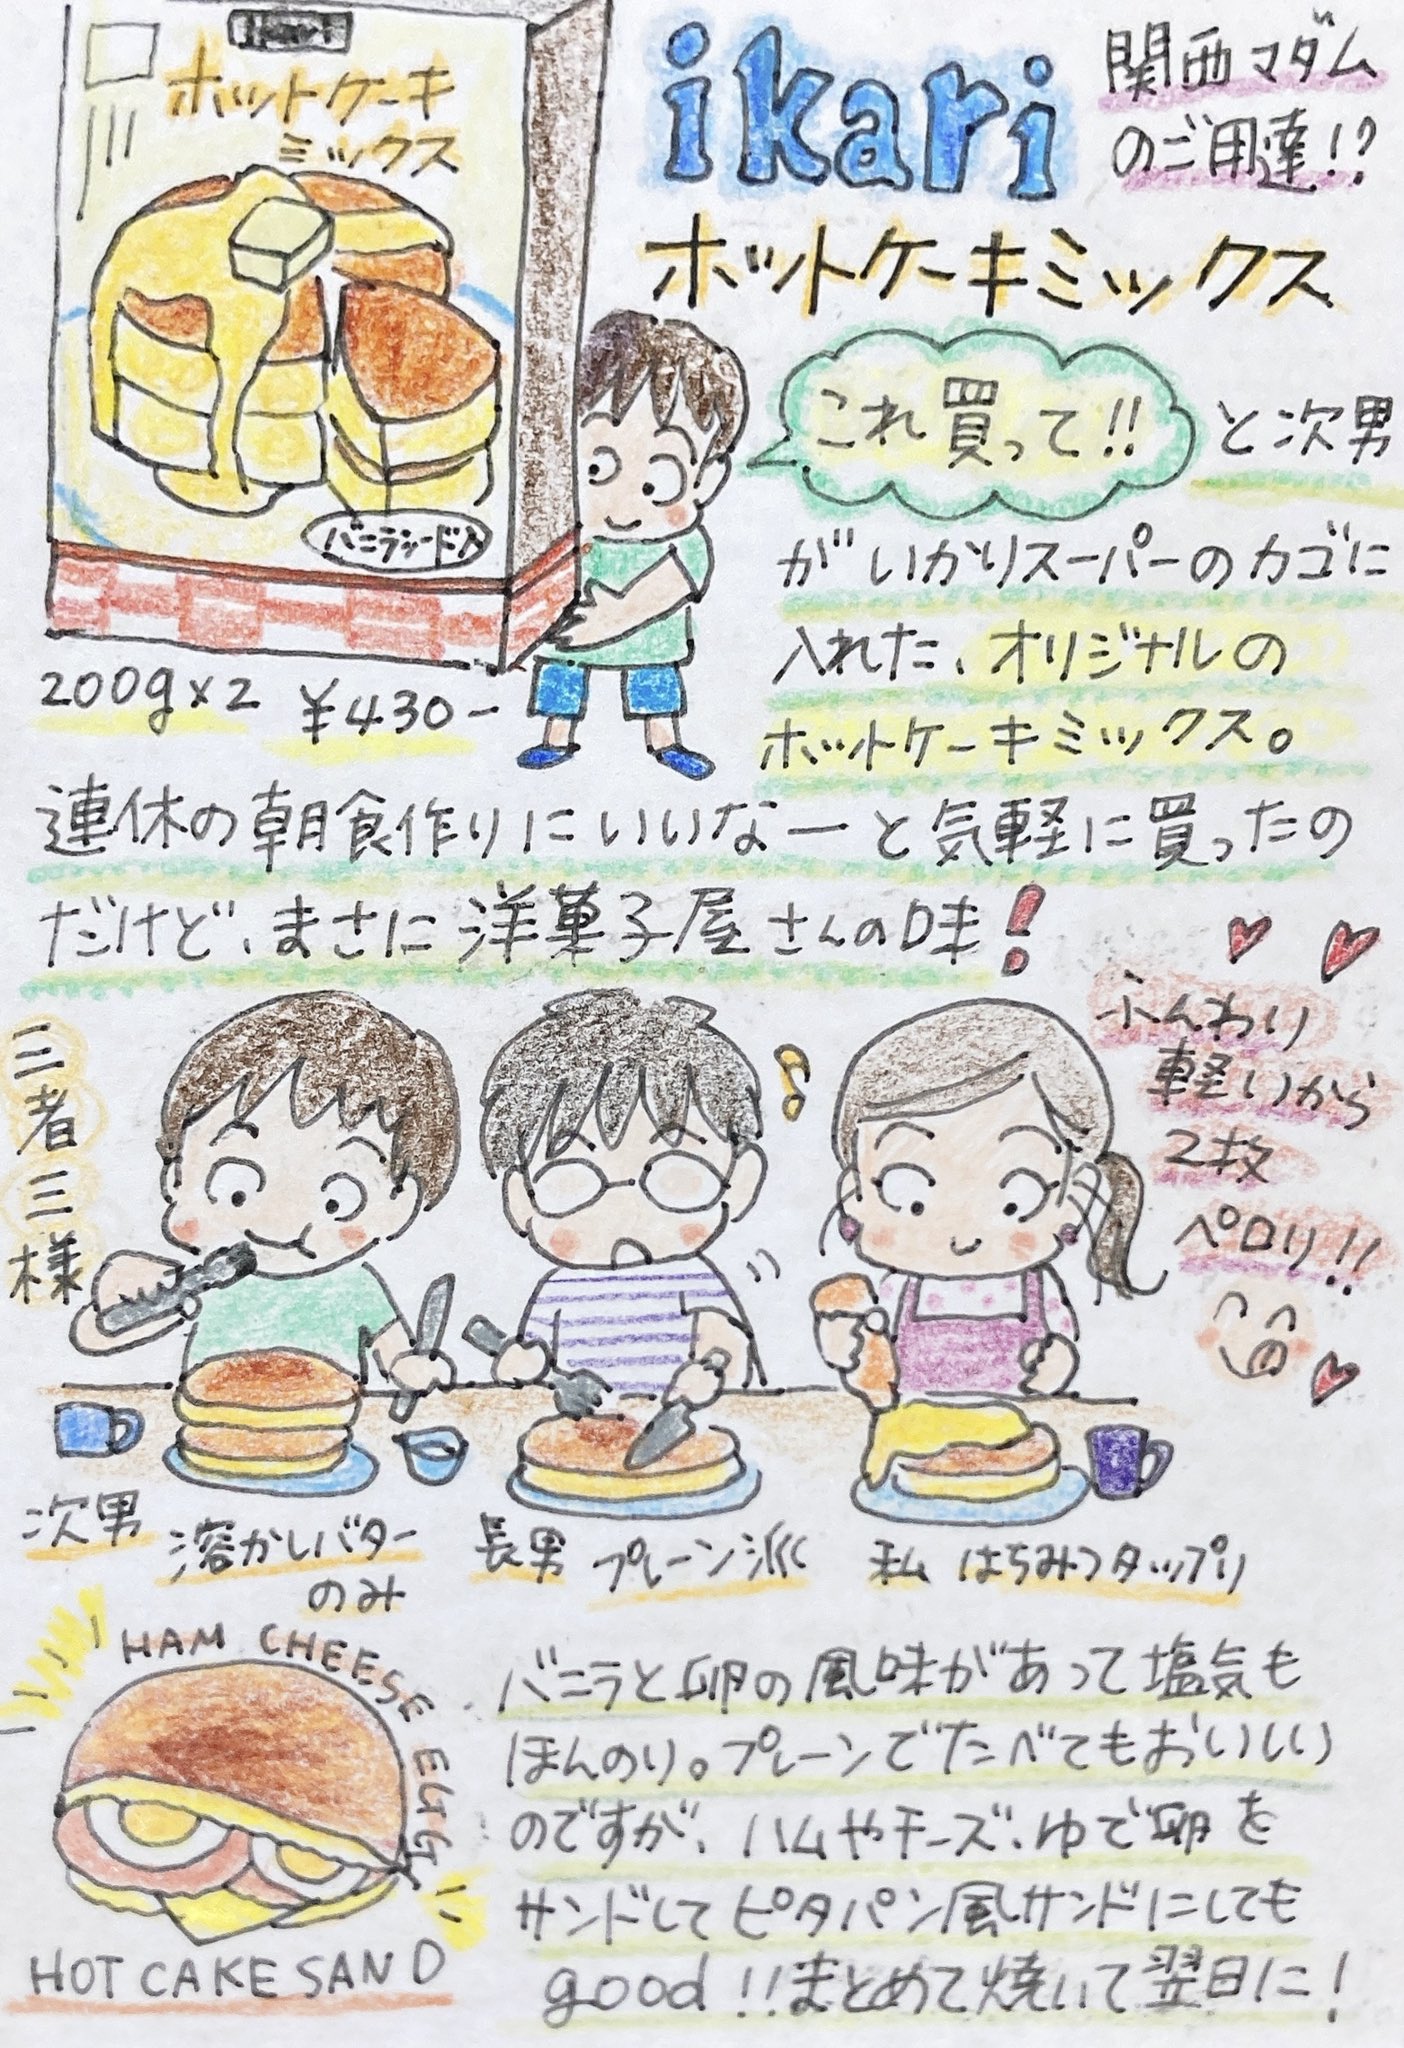 ホットケーキ
ミックス
バニラシード入
ikari
関西マダム
のご用達!?
ホットケーキミックス
これ買って!! と次男
がいかりスーパーのカゴに
入れた、オリジナルの
ホットケーキミックス。
200g×2 ¥430-
連休の朝食作りにいいなーと気軽に買ったの
だけど、まさに洋菓子屋さんの味!
三者三様
ふんわり
軽いから
2枚
ペロリ!!
次男 溶かしバター
のみ
長男 プレーン派
私 はちみつタップリ
HAM CHEESE EGG
HOT CAKE SAND
バニラと卵の風味があって塩気も
ほんのり。プレーンでたべてもおいしい
のですが、ハムやチーズ、ゆで卵を
サンドしてピタパン風サンドにしても
good!!まとめて焼いて翌日に!